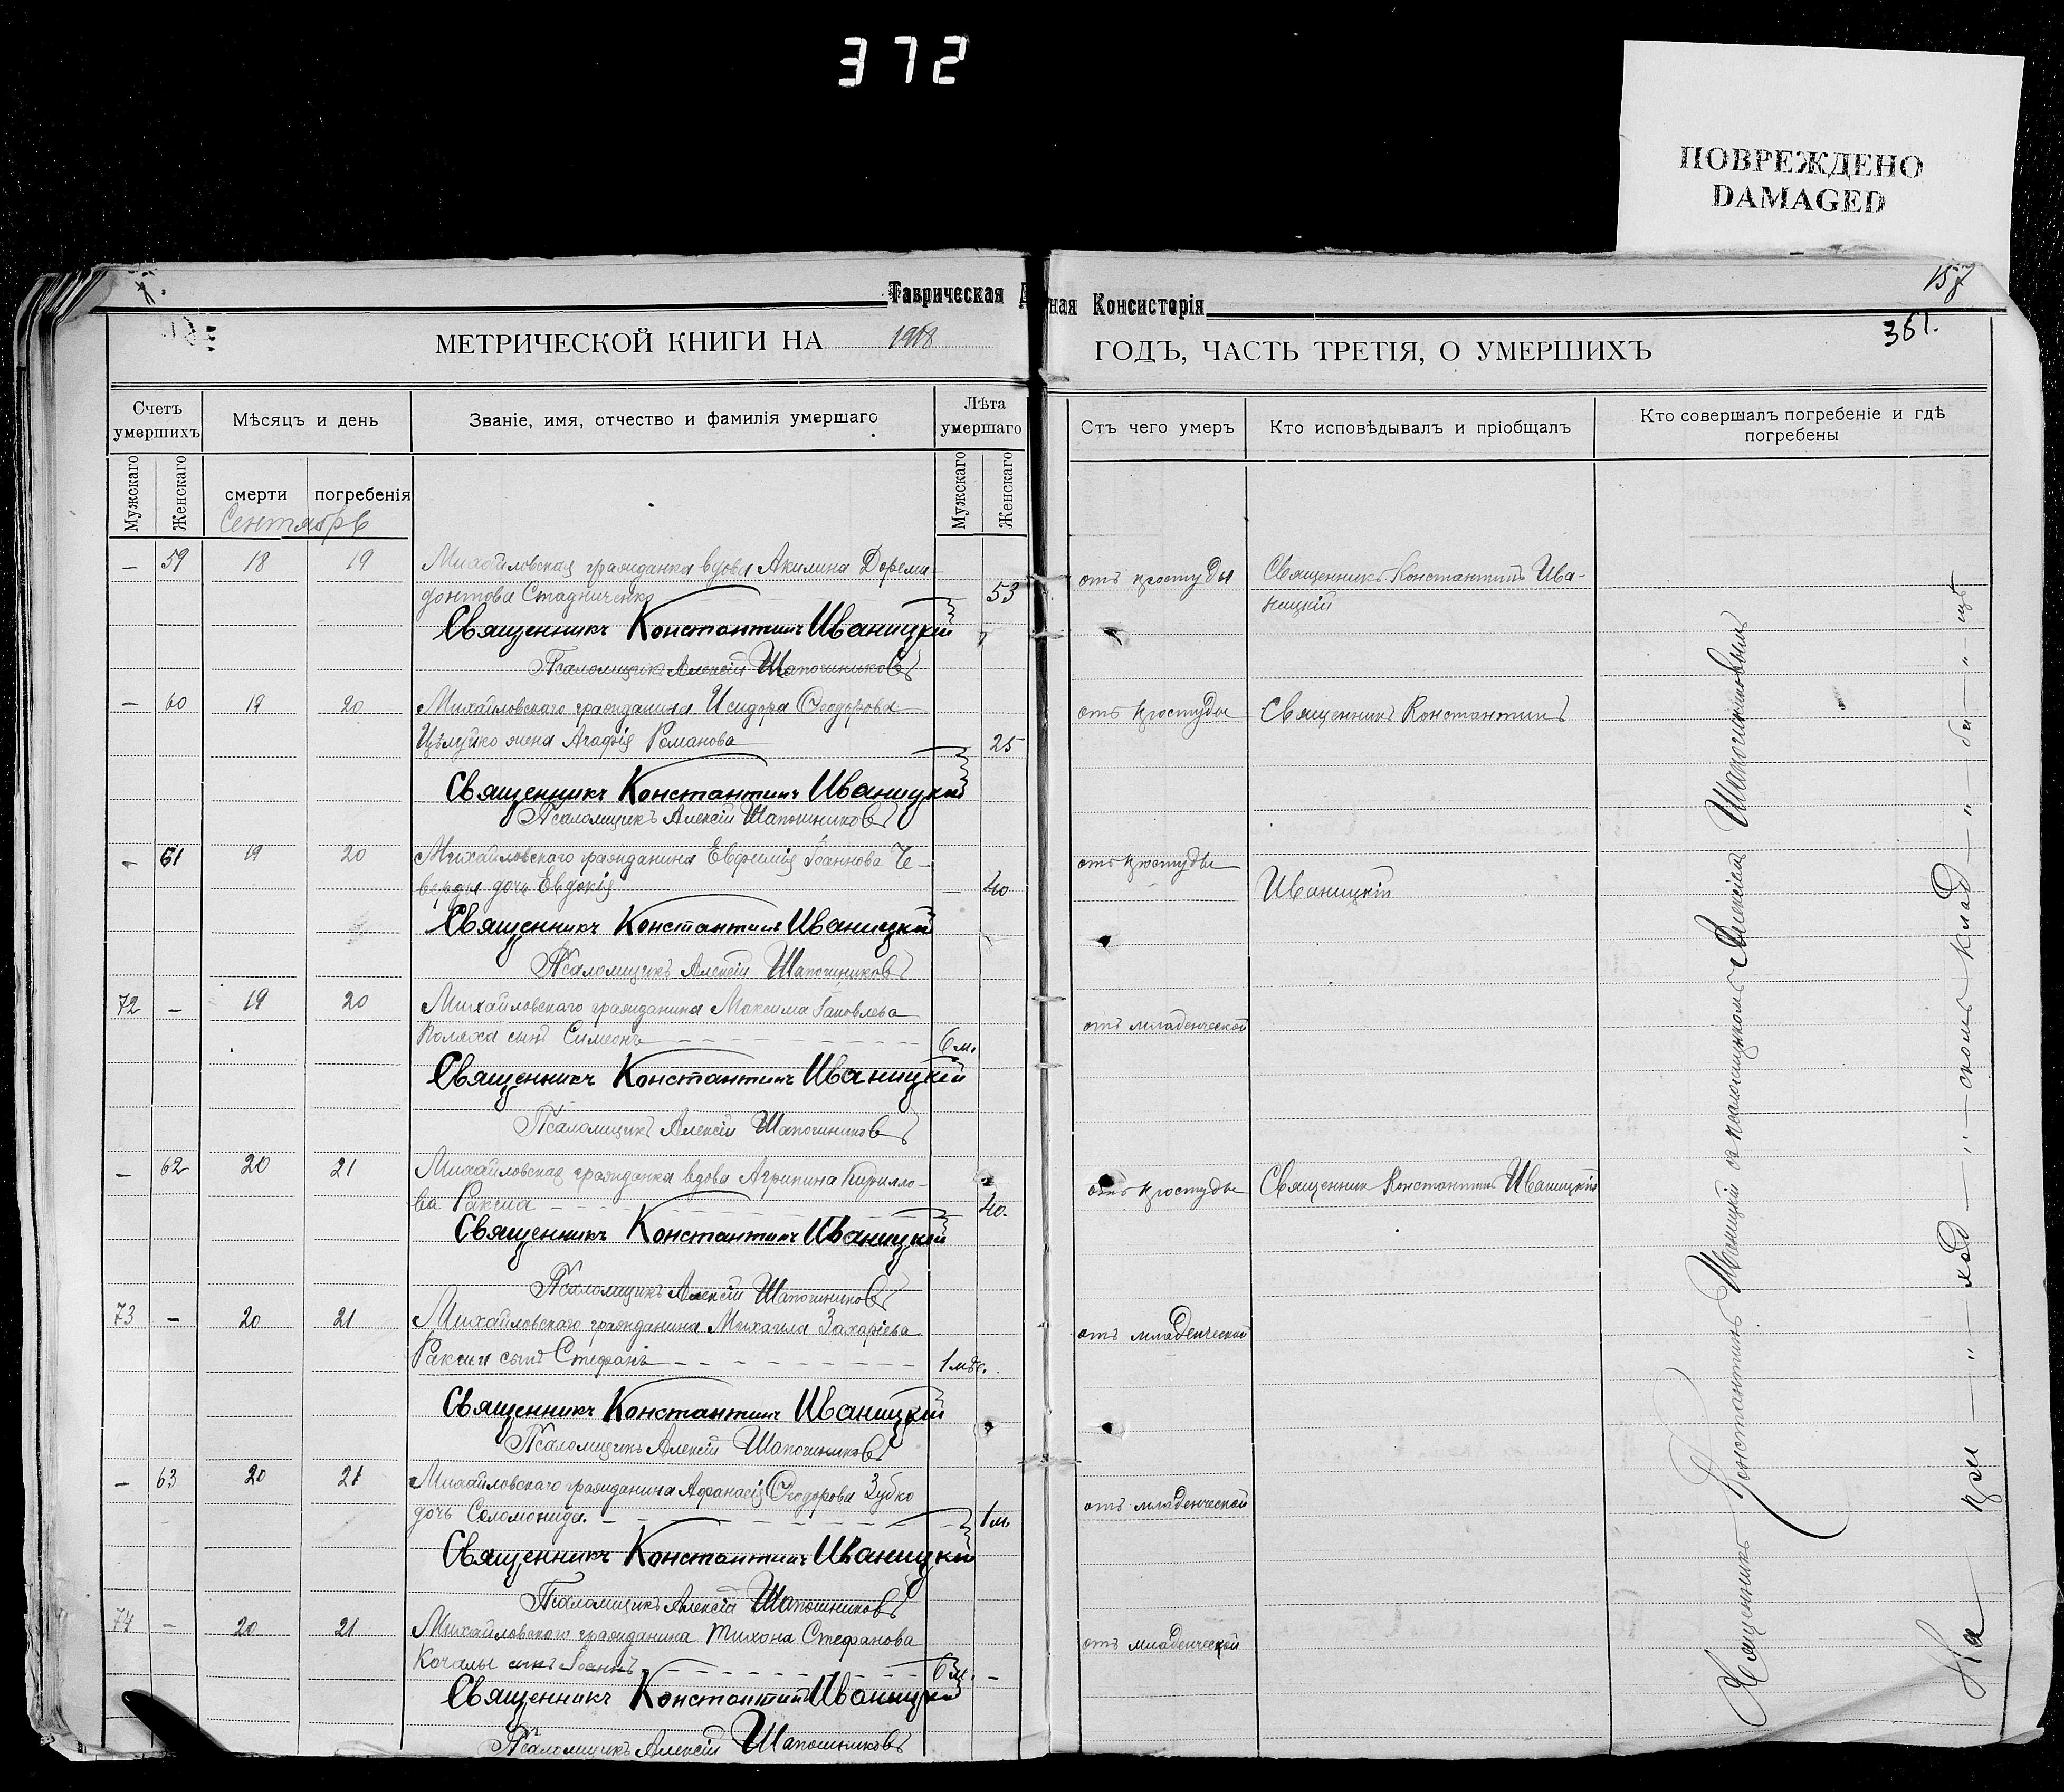 372
ПОВРЕЖДЕНО
DAMAGED
Таврическая Д
ная Консисторія
157
361.
МЕТРИЧЕСКОЙ КНИГИ НА 1918
ГОДЪ, ЧАСТЬ ТРЕТІЯ, О УМЕРШИХЪ
Счетъ умершихъ
Мѣсяцъ и день
Званіе, имя, отчество и фамилія умершаго
Лѣта умершаго
Отъ чего умеръ
Кто исповѣдывалъ и пріобщалъ
Кто совершалъ погребеніе и гдѣ погребены
Мужскаго
Женскаго
смерти
погребенія
Мужскаго
Женскаго
Сентябрь
— 59 18 19 Михайловская гражданка вдова Акилина Дореми-
донтова Стадниченко 53
отъ простуды
Священникъ Константинъ Ива-
ницкій
Священникъ Константинъ Иваницкій
Псаломщикъ Алексій Шапошниковъ
— 60 19 20 Михайловскаго гражданина Исидора Ѳеодорова
Цѣлуйко жена Агафія Романова 25
отъ простуды
Священникъ Константинъ
Священникъ Константинъ Иваницкій
Псаломщикъ Алексій Шапошниковъ
— 61 19 20 Михайловскаго гражданина Евфимія Іоаннова Че-
верды дочь Евдокія — 40
отъ простуды
Иваницкій
Священникъ Константинъ Иваницкій
Псаломщикъ Алексій Шапошниковъ
72 — 19 20 Михайловскаго гражданина Максима Іаковлева
Поляха сынъ Симеонъ 6 м.
отъ младенческой
Священникъ Константинъ Иваницкій
Псаломщикъ Алексій Шапошниковъ
— 62 20 21 Михайловская гражданка вдова Агрипина Кирилло-
ва Ракша 40.
отъ простуды
Священник Константинъ Иваницкій
Священникъ Константинъ Иваницкій
Псаломщикъ Алексій Шапошниковъ
73 — 20 21 Михайловскаго гражданина Михаила Захаріева
Ракши сынъ Стефанъ 1 мѣс.
отъ младенческой
Священникъ Константинъ Иваницкій
Псаломщикъ Алексій Шапошниковъ
— 63 20 21 Михайловскаго гражданина Афанасія Ѳеодорова Зубко
дочь Соломонида. 1 м.
отъ младенческой
Священникъ Константинъ Иваницкій
Псаломщикъ Алексій Шапошниковъ
74 — 20 21 Михайловскаго гражданина Тихона Стефанова
Кочалы сынъ Іоаннъ 6 м. —
отъ младенческой
Священникъ Константинъ Иваницкій
Псаломщикъ Алексій Шапошниковъ
Священникъ Константинъ Иваницкій съ псаломщикомъ Алексіемъ Шапошниковымъ
На — при — " — ход — " — скомъ клад — " — би — " — щѣ